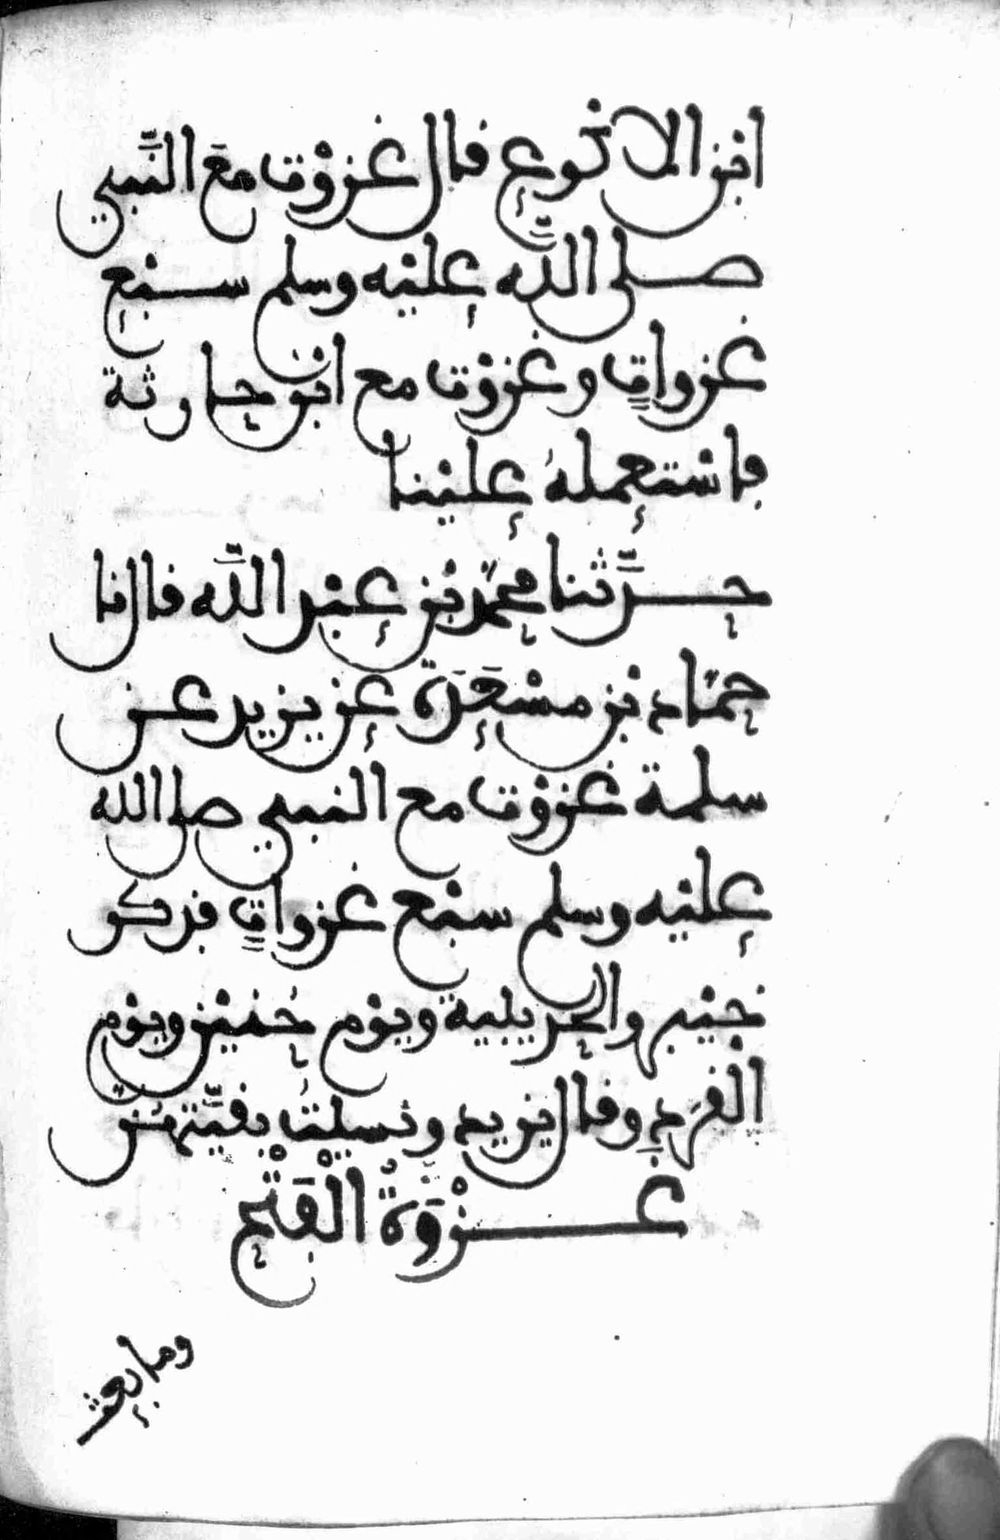 ابن الاكوع قال غزوت مع النَّبي
صلى اللَّه عليه وسلم سبع
غزواتٍ وغزوت مع ابن حارثة
فاستعمله علينا
حدَّثنا محمّد بن عبد اللَّه قال نا
حمّاد بن مسْعَدَة عن يزيد عن
سلمة غزوْت مع النبي صلى الله
عليْه وسلم سبْع غزواتٍ فذكر
خيْبر والحديبية ويوْم حُنيْن ويوْم
الْقرَدِ وقال يزيد ونسيتُ بقيَّتهمْ
غزْوَةُ الْفَتْحِ
وما بعث